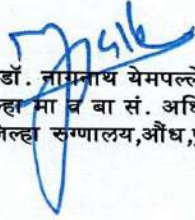 डॉ. नागनाथ येमपल्ले
ल्हा मा व बा सं. अधि
जिल्हा रुग्णालय,औंध,